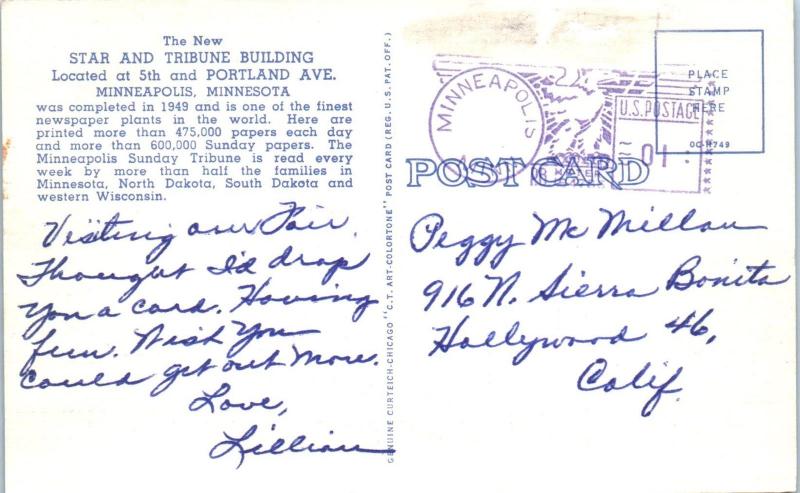 The New
STAR AND TRIBUNE BUILDING
Located at 5th and PORTLAND AVE.
MINNEAPOLIS, MINNESOTA
was completed in 1949 and is one of the finest
newspaper plants in the world. Here are
printed more than 475,000 papers each day
and more than 600,000 Sunday papers. The
Minneapolis Sunday Tribune is read every
week by more than half the families in
Minnesota, North Dakota, South Dakota and
western Wisconsin.
Visiting our Fair.
Thought I'd drop
you a card. Having
fun. Wish you
could get out more.
Love,
Lillian
GENUINE CURTEICH-CHICAGO "C.T. ART-COLORTONE" POST CARD (REG. U.S. PAT. OFF.)
MINNEAPOLIS
U.S. POSTAGE
01
PLACE
STAMP
HERE
OC-H749
POST CARD
Peggy McMillan
916 N. Sierra Bonita
Hollywood 46,
Calif.